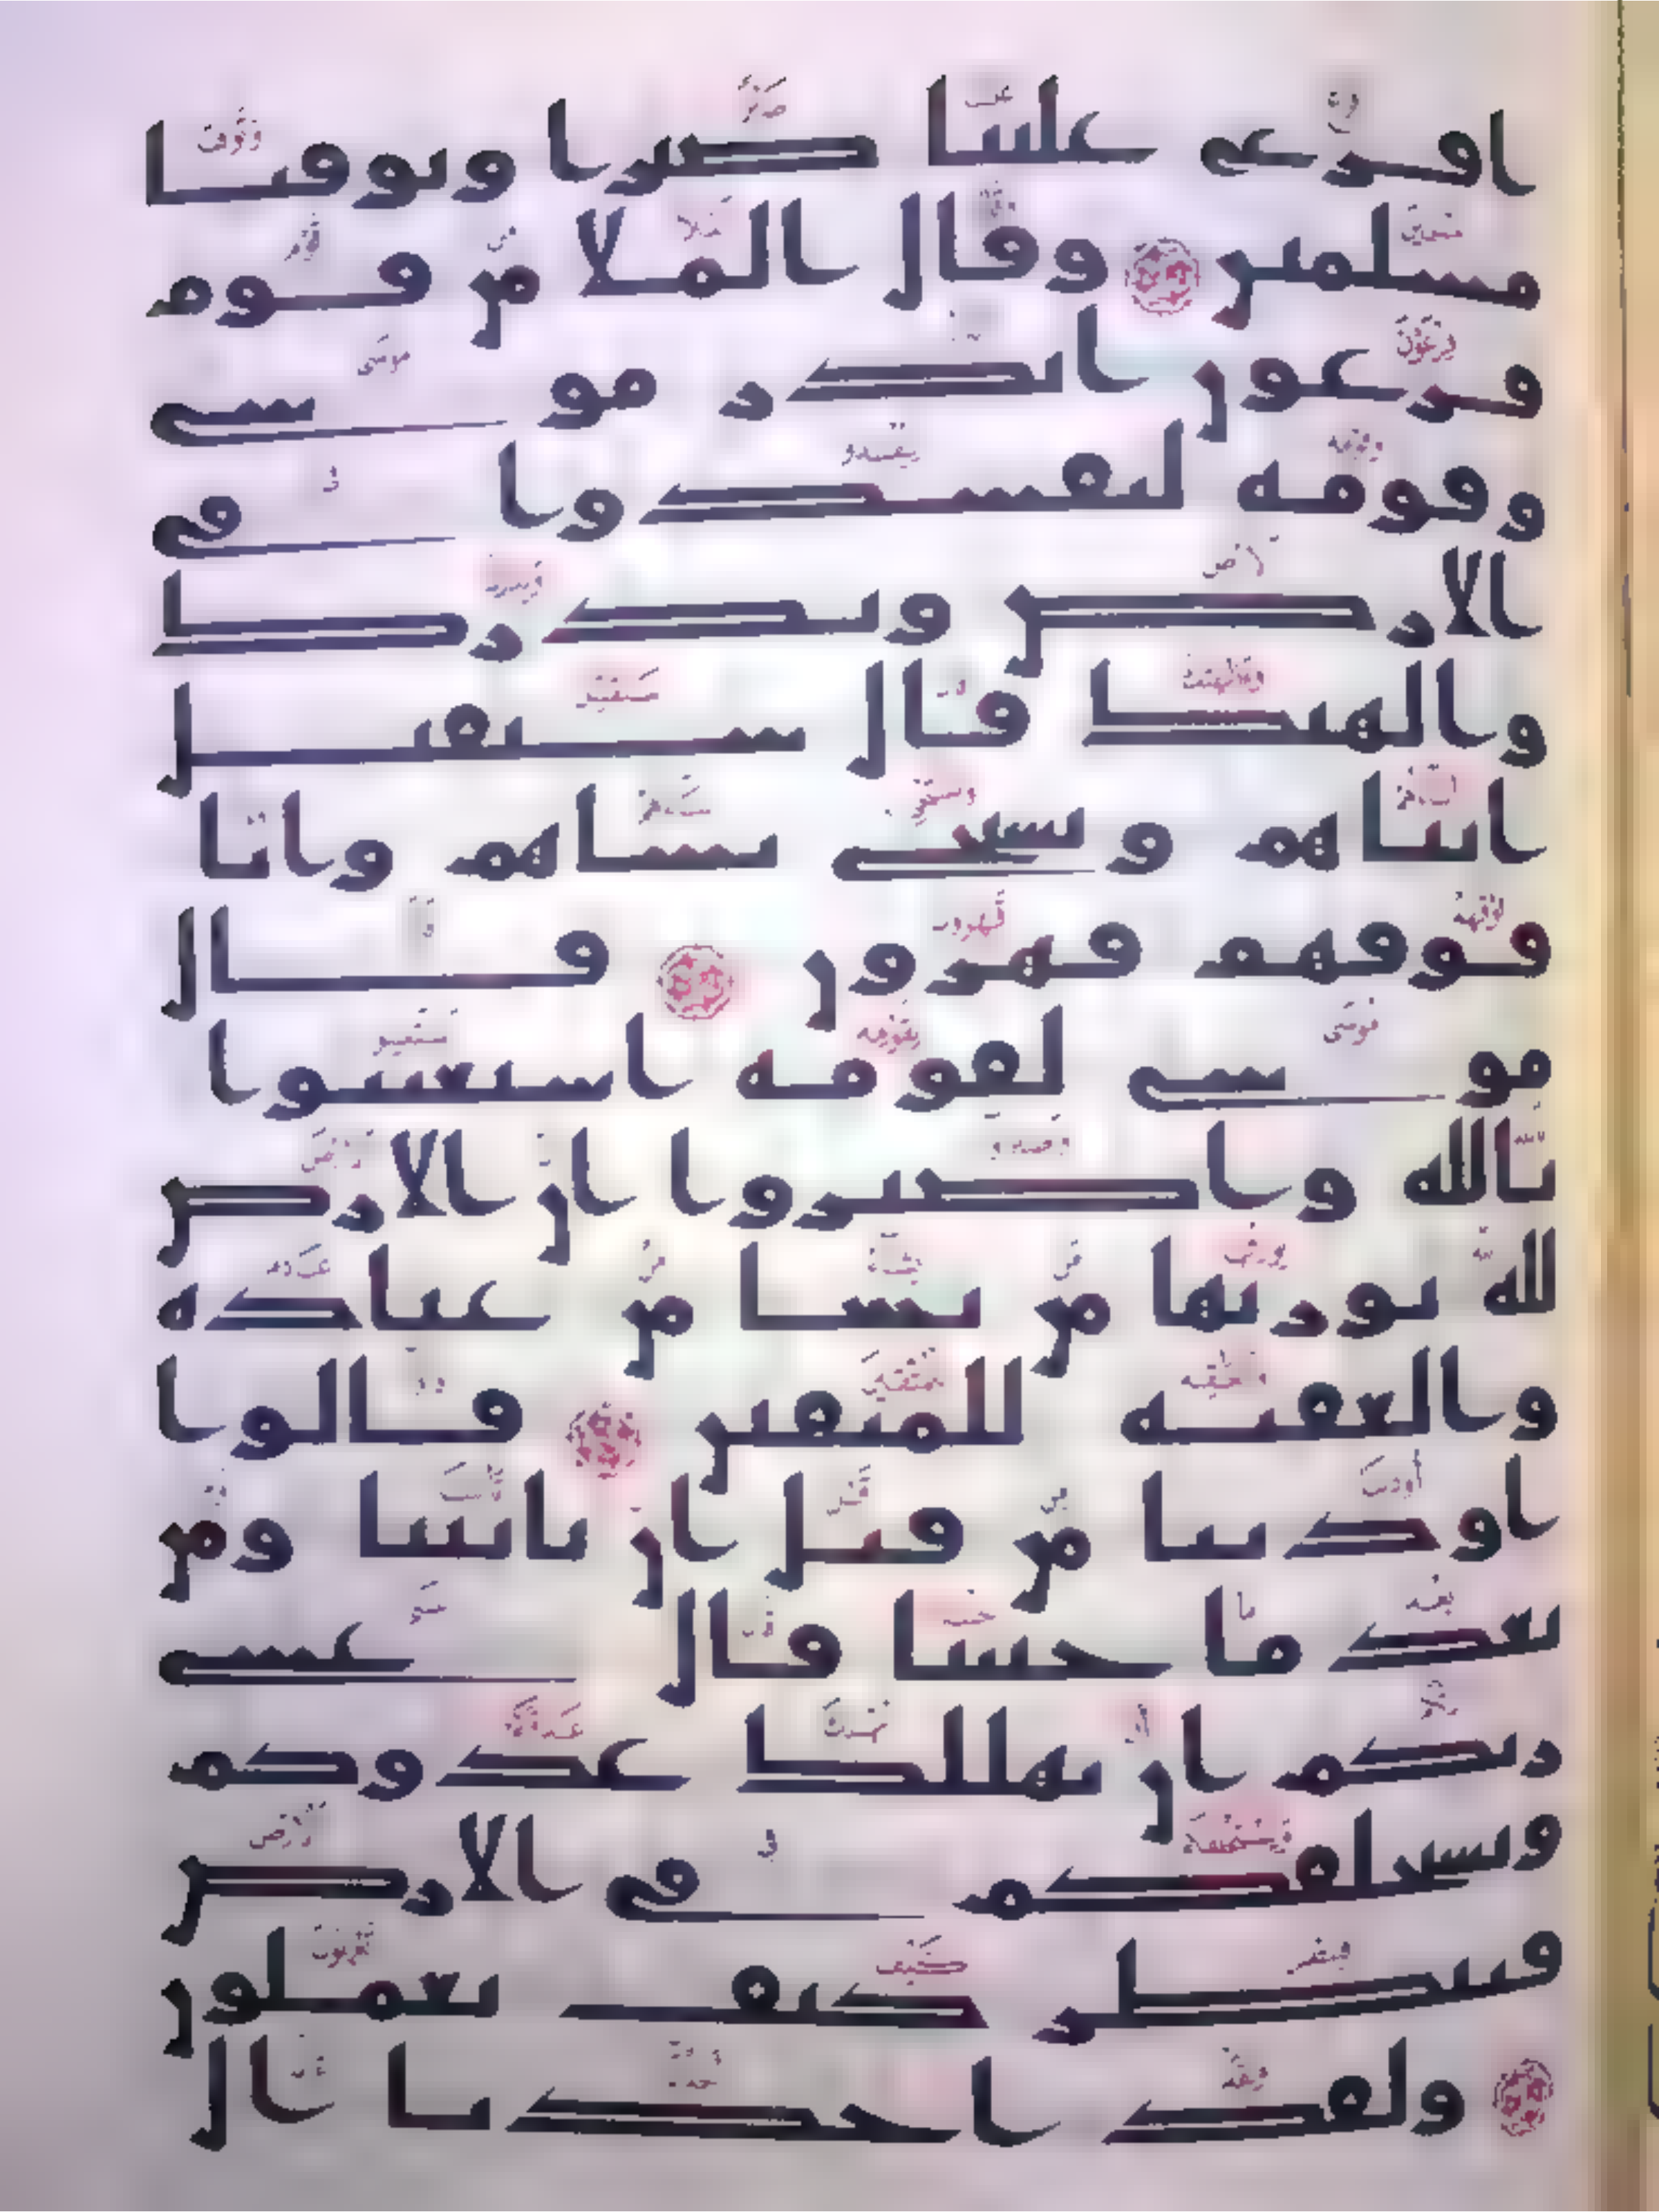 افرغ علينا صبرا وتوفنا
مسلمين وقال الملا من قوم
فرعون اتذر موسى
وقومه ليفسدوا في
الارض ويذرك
والهتك قال سنقتل
ابناهم ونستحي نساهم وانا
فوقهم قهرون قال
موسى لقومه استعينوا
بالله واصبروا ان الارض
لله يورثها من يشا من عباده
والعقبه للمتقين قالوا
اوذينا من قبل ان تاتينا ومن
بعد ما جئتنا قال عسى
ربكم ان يهلك عدوكم
ويستخلفكم في الارض
فينظر كيف تعملون
ولقد اخذنا ال